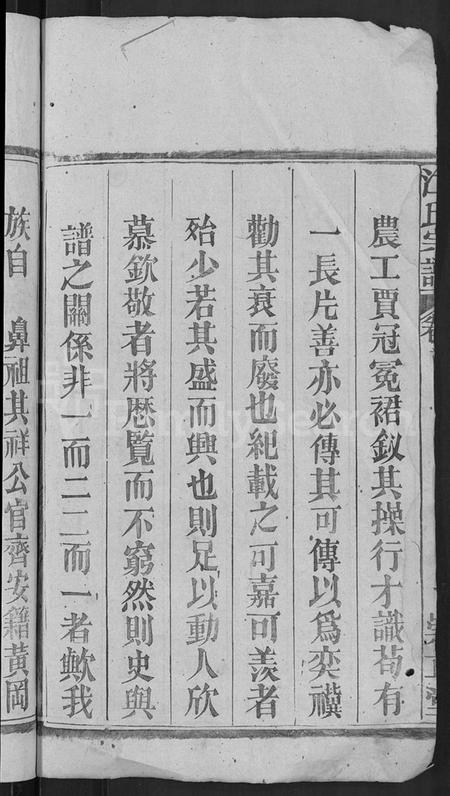 農工賈冠冕裙釵其操行才識茍有
一長片善亦必傳其可傳以爲奕禩
勸其衰而廢也紀載之可嘉可羨者
殆少若其盛而興也則足以動人欣
慕欽敬者將歴覧而不窮然則史與
譜之關係非一而二二而一者歟我
族自 鼻祖其祥公官齊安籍黃岡